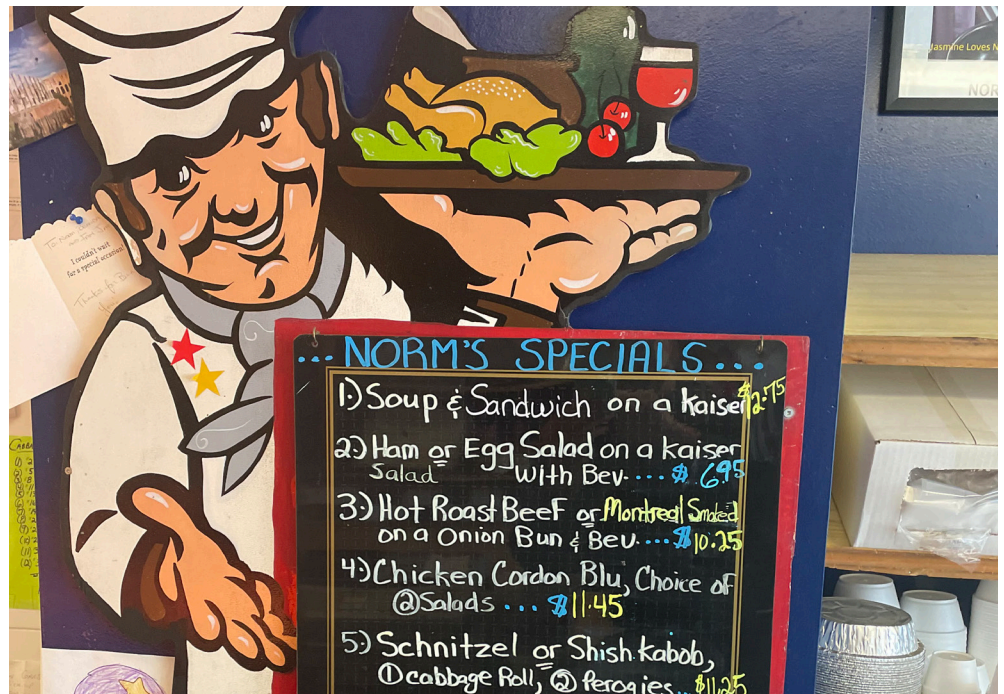 Jasmine Loves N
NOR
I couldn't wait
for a special occasion!
Thanks for
... NORM'S SPECIALS ...
1.) Soup & Sandwich on a Kaiser $12.75
2.) Ham or Egg Salad on a Kaiser
Salad with Bev.... $ 6.95
3.) Hot Roast Beef or Montreal Smoked
on a Onion Bun & Bev.... $10.25
4.) Chicken Cordon Blu, Choice of
② Salads ... $11.45
5.) Schnitzel or Shish Kabob,
① Cabbage Roll, ② Perogies.. $11.25